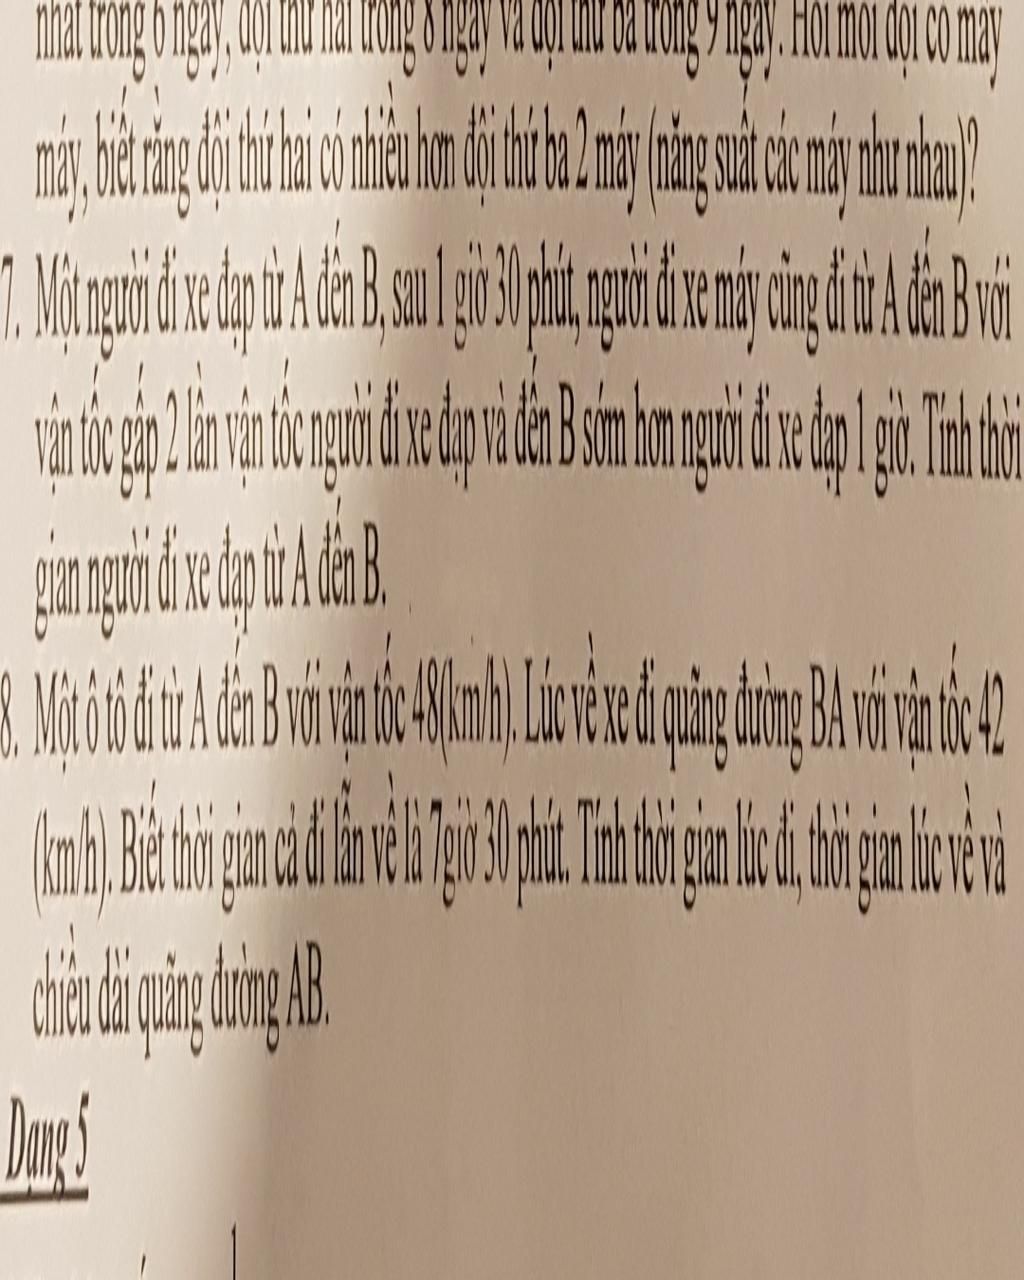 nhất trong 6 ngày, đội thứ hai trong 8 ngày và đội thứ ba trong 9 ngày. Hỏi mỗi đội có mấy
máy, biết rằng đội thứ hai có nhiều hơn đội thứ ba 2 máy (năng suất các máy như nhau)?
7. Một người đi xe đạp từ A đến B, sau 1 giờ 30 phút, người đi xe máy cũng đi từ A đến B với
vận tốc gấp 2 lần vận tốc người đi xe đạp và đến B sớm hơn người đi xe đạp 1 giờ. Tính thời
gian người đi xe đạp từ A đến B.
8. Một ô tô đi từ A đến B với vận tốc 48(km/h). Lúc về xe đi quãng đường BA với vận tốc 42
(km/h). Biết thời gian cả đi lẫn về là 7giờ 30 phút. Tính thời gian lúc đi, thời gian lúc về và
chiều dài quãng đường AB.
Dạng 5